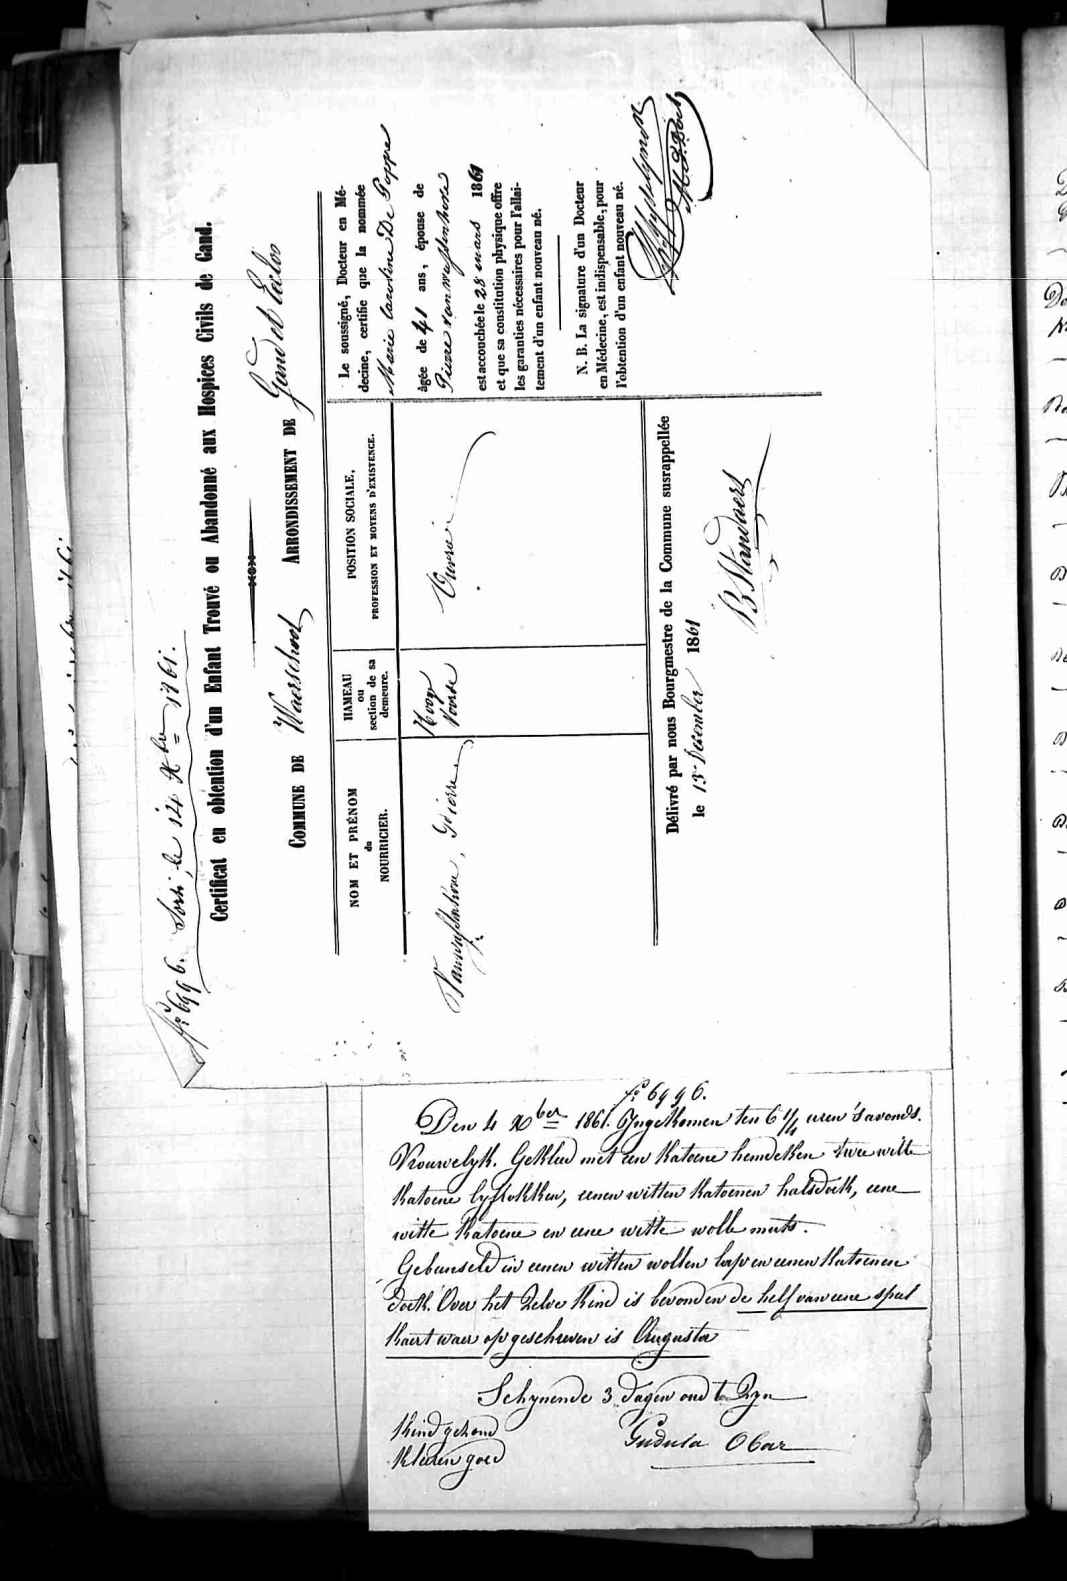 No 6996. Sorti, le 14 Xbre 1861.
Certificat en obtention d'un Enfant Trouvé ou Abandonné aux Hospices Civils de Gand.
COMMUNE DE Waerschoot ARRONDISSEMENT DE Gand et Eecloo
NOM ET PRÉNOM
du
NOURRICIER.
HAMEAU
ou
section de sa
demeure.
POSITION SOCIALE,
PROFESSION ET MOYENS D'EXISTENCE.
Pierre
Hoog
Voorde
Ouvrier
Le soussigné, Docteur en Mé-
decine, certifie que la nommée
Marie Caroline De Poppe
âgée de 41 ans, épouse de
Pierre
est accouchée le 28 mars 1861
et que sa constitution physique offre
les garanties nécessaires pour l'allai-
tement d'un enfant nouveau né.
N. B. La signature d'un Docteur
en Médecine, est indispensable, pour
l'obtention d'un enfant nouveau né.
Délivré par nous Bourgmestre de la Commune susrappellée
le 13 December 1861
B Standaert
No 6996.
Den 4 Xber 1861. Ingekomen ten 6 1/4 uren 's avonds.
Vrouwelyk. Gekleed met een katoene hemdeken twee witte
katoene lyfrokken, eenen witten katoenen halsdoek, eene
witte katoene en eene witte wolle muts.
Gebunseld in eenen witten wollen lap en eenen katoenen
doek. Over het zelve kind is bevonden de helf van eene speel
kaert waer op geschreven is Augusta
Schynende 3 dagen oud te zyn
kind gezond
kleeren goed
Gudula Obar